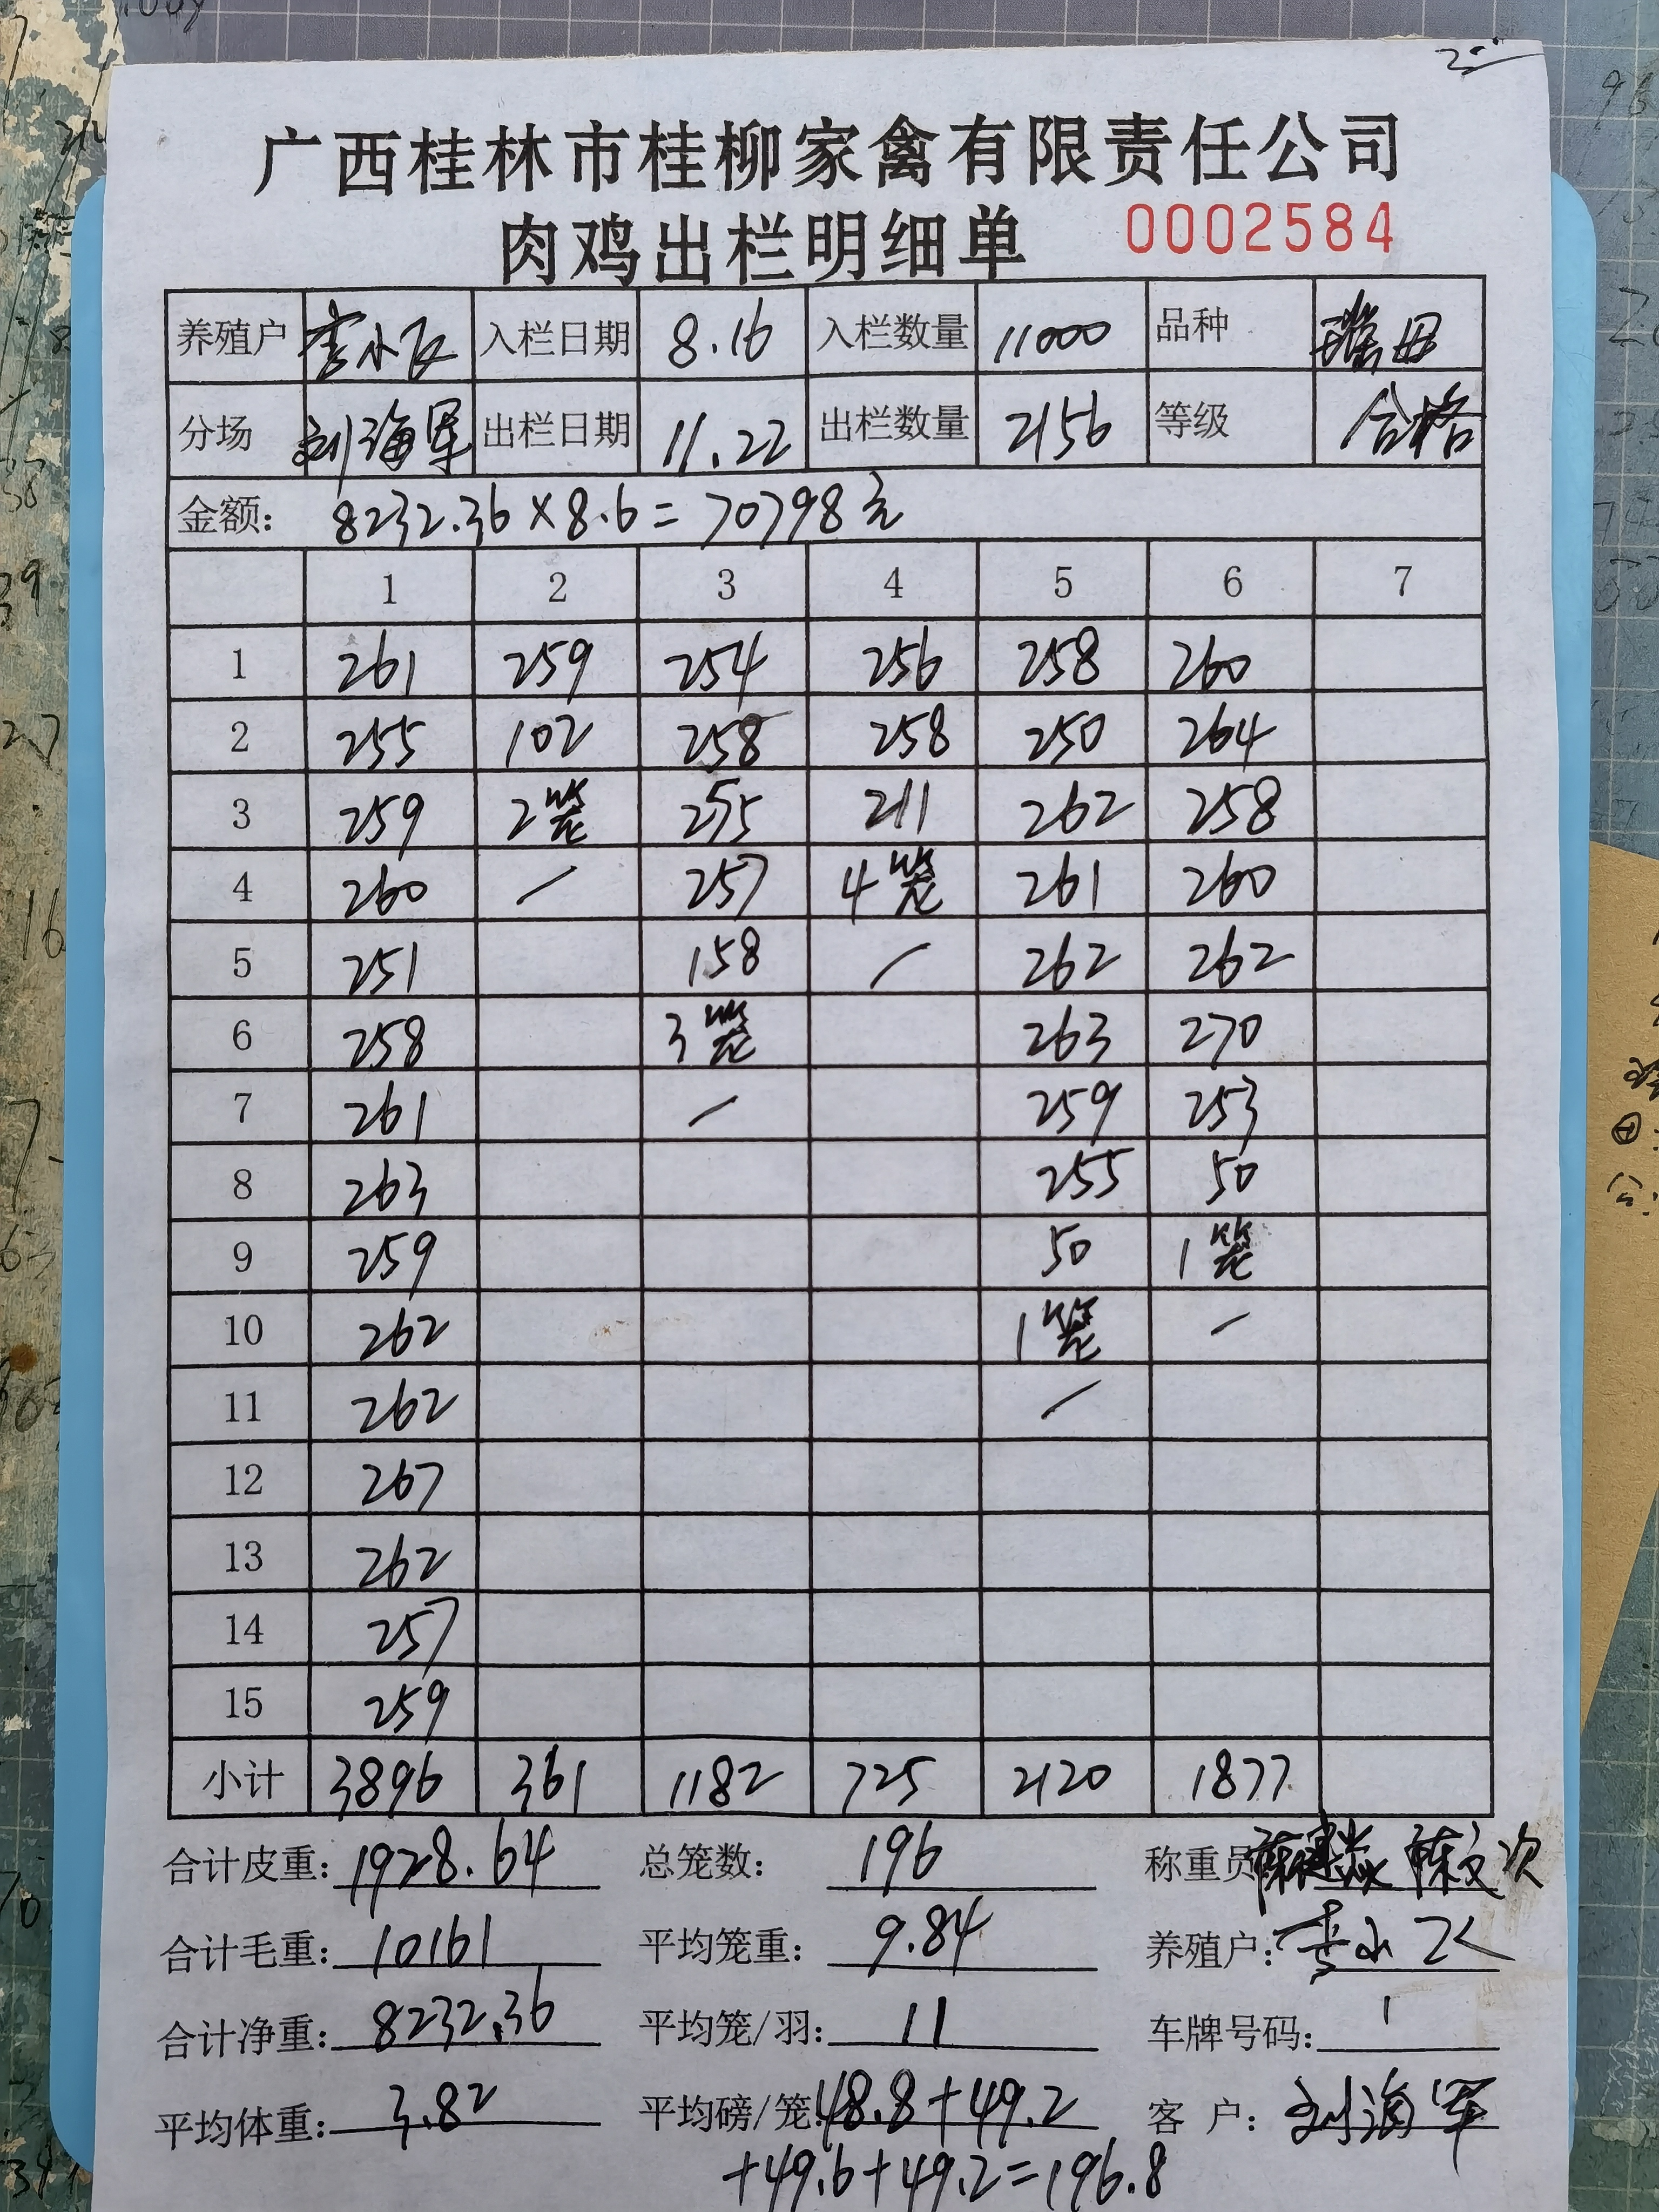 广西桂林市桂柳家禽有限责任公司
肉鸡出栏明细单 0002584
养殖户 李小 入栏日期 8.16 入栏数量 11000 品种 瑶母
分场 刘海军 出栏日期 11.22 出栏数量 2156 等级 合格
金额: 8232.36×8.6=70798元
1 2 3 4 5 6 7
1 261 259 254 256 258 260
2 255 102 258 258 250 264
3 259 2笼 255 211 262 258
4 260 / 257 4笼 261 260
5 251 158 / 262 262
6 258 3笼 263 270
7 261 / 259 253
8 263 255 50
9 259 50 1笼
10 262 1笼 /
11 262 /
12 267
13 262
14 257
15 259
小计 3896 361 1182 725 2120 1877
合计皮重: 1928.64 总笼数: 196 称重员
合计毛重: 10161 平均笼重: 9.84 养殖户: 李小
合计净重: 8232.36 平均笼/羽: 11 车牌号码: 1
平均体重: 3.82 平均磅/笼: 48.8+49.2 客 户: 刘海军
+49.6+49.2=196.8